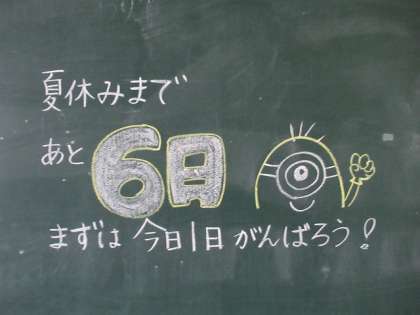 夏休みまで
あと6日
まずは今日1日がんばろう!